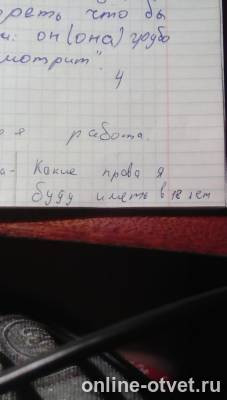 что бы
он (она) грубо
смотрит".
4
я работа.
а- Какие права я
буду иметь в 18 лет
online-otvet.ru